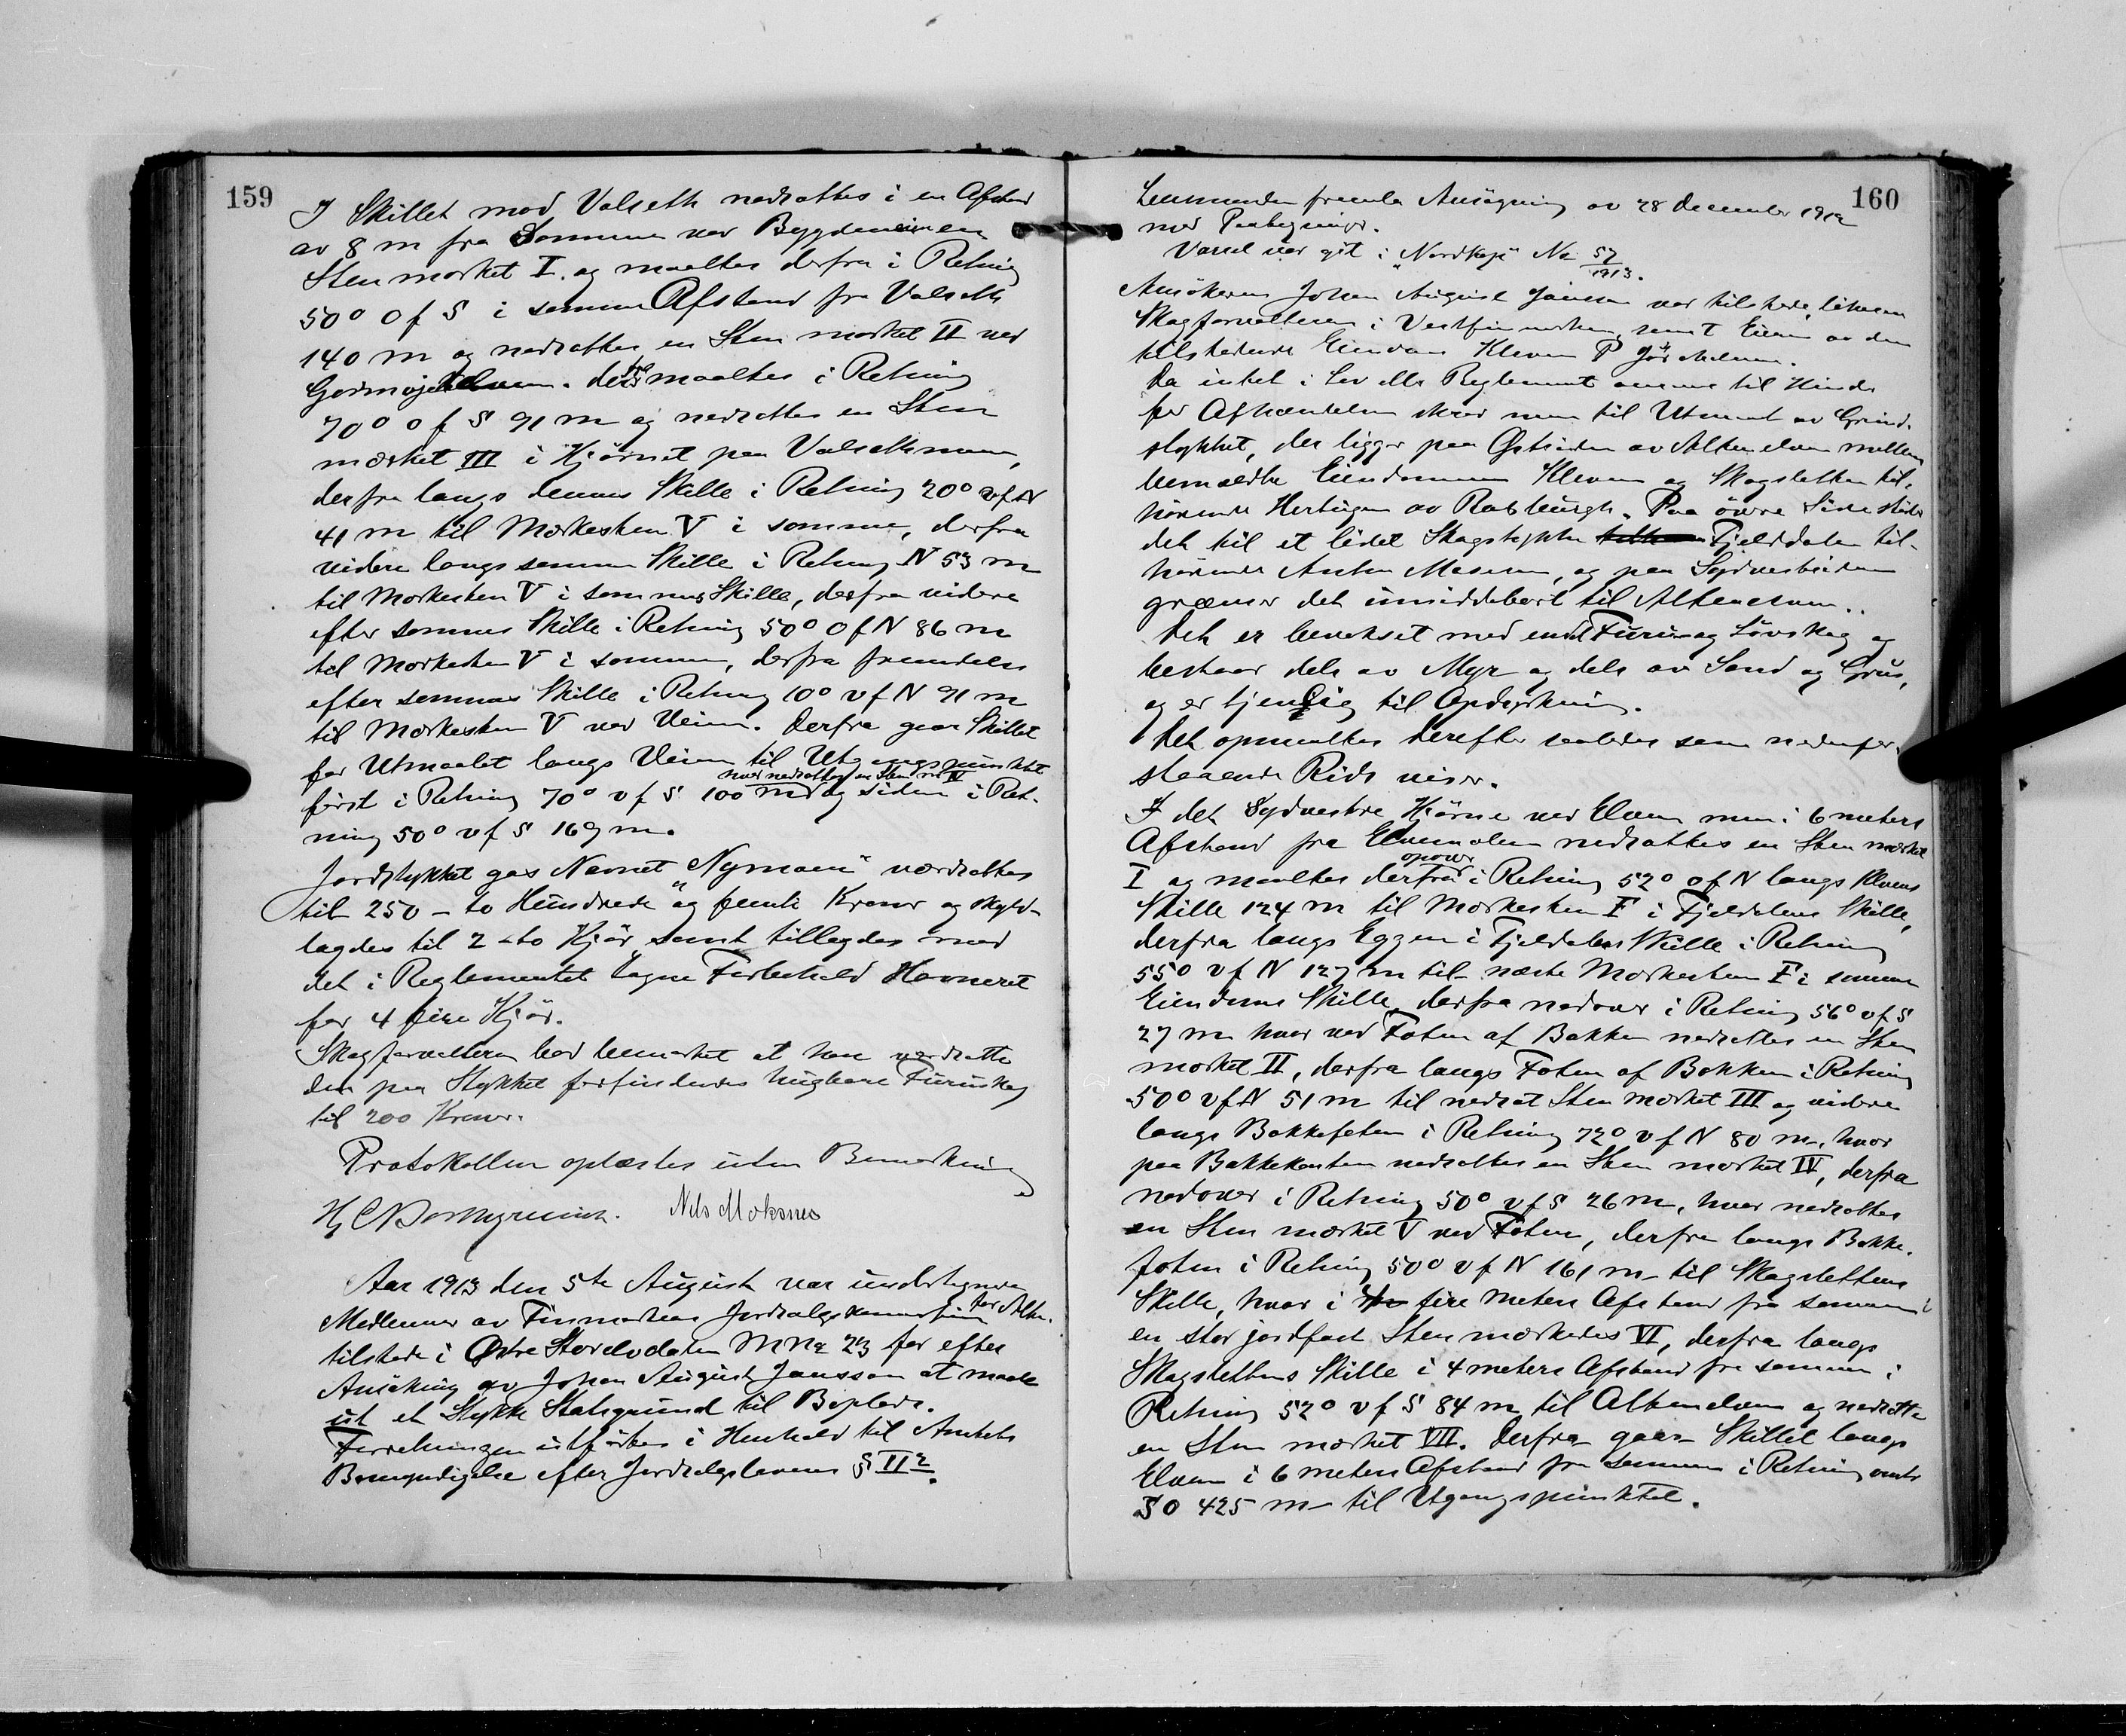 159
I Skillet mod Valseth nedsattes i en Afstand
av 8 m fra Samme ved Bygdeveien en
Sten mærket I. og maaltes derfra i Retning
50° O f S i samme Afstand fra Valseth
140 m og nedsattes en Sten mærket II ved
derfra maaltes i Retning
70° O f S 91 m og nedsattes en Sten
mærket III i Hjørnet paa Valsethmoen,
derfra langs dennes Skille i Retning 20° v f N
41 m til Mærkesten V i samme, derfra
videre langs samme Skille i Retning N 53 m
til Mærkesten V i sammes Skille, derfra videre
efter sammes Skille i Retning 50° O f N 86 m
til Mærkesten V i samme, derfra fremdeles
efter sammes Skille i Retning 10° v f N 91 m
til Mærkesten V ved Veien. Derfra gaar Skillet
for Utmaalet langs Veien til Utgangspunktet
først i Retning 70° v f S 100 m hvor nedsattes en Sten m IV og siden i Ret-
ning 50° v f S 169 m.
Jordstykket gas Navnet "Nymoen" værdsattes
til 250 - to Hundrede og femti Kroner og skyld-
lagdes til 2 - to Kjør, samt tillagdes med
det i Reglementet tagne Forbehold Havneret
for 4 fire Kjør.
Skogforvalteren bad bemærket at han værdsatte
den paa Stykket forfindendes hugbare Furuskog
til 200 Kroner.
Protokollen oplæstes uten Bemærkning
Nils Moksnes
Aar 1913 den 5te August var undertegnede
Medlemmer av Finmarkens Jordsalgskommission for Alten
tilstede i Østre Storelvdalen M No 23 for efter
Ansøkning av Johan August Jansson at maale
ut et Stykke Statsgrund til Boplads.
Forretningen utføres i Henhold til Amtets
Bemyndigelse efter Jordsalgslovens § II 2.
160
Lensmanden fremla Ansøgning av 28 December 1912
med Paategninger.
Varsel var git i "Nordkap" No 57/1913.
Ansøkeren Johan August Jansson var tilstede, likesaa
Skogforvalteren i Vestfinmarken, samt Eieren av den
tilstødende Eiendom Kleven P
Da intet i Lov eller Reglement ansaaes til Hinder
for Afhændelsen skred man til Utmaal av Grund-
stykket, der ligger paa Østsiden av Altenelven mellem
bemældte Eiendommen Kleven og Skogsletten til-
hørende Hertugen av Roxburgh. Paa øvre Side støder
det til et lidet Skogstykke Fjelddalen til-
hørende Anton Masurn, og paa Sydvestsiden
grænser det umiddelbart til Altenelven.
Det er bevokset med endel Furu- og Løvskog og
bestaar dels av Myr og dels av Sand og Grus,
og er tjenlig til Opdyrkning.
Det opmaaltes derefter saaledes som nedenfor-
staaende Rids viser.
I det Sydvestre Hjørne ved Elven men i 6 meters
Afstand fra Elvemælen nedsattes en Sten mærket
I og maaltes derfra opover i Retning 52° O f N langs Klevens
Skille 124 m til Mærkesten F i Fjeldalens Skille,
derfra langs Eggen i Fjeldalens Skille i Retning
55° v f N 127 m til næste Mærkesten F i samme
Eiendoms Skille, derfra nedover i Retning 56° v f S
27 m hvor ved Foten af Bakken nedsattes en Sten
mærket II, derfra langs Foten af Bakken i Retning
50° v f N 51 m til nedsat Sten mærket III og videre
langs Bakkefoten i Retning 72° v f N 80 m, hvor
paa Bakkekanten nedsattes en Sten mærket IV, derfra
nedover i Retning 50° v f S 26 m, hvor nedsattes
en Sten mærket V ved Foten, derfra langs Bakke-
foten i Retning 50° v f N 161 m til Skogslettens
Skille, hvor i fire Meters Afstand fra samme i
en stor jordfast Sten mærkedes VI, derfra langs
Skogslettens Skille i 4 meters Afstand fra samme i
Retning 52° v f S 84 m til Altenelven og nedsattes
en Sten mærket VII. Derfra gaar Skillet langs
Elven i 6 meters Afstand fra samme i Retning omtr
SO 425 m til Utgangspunktet.